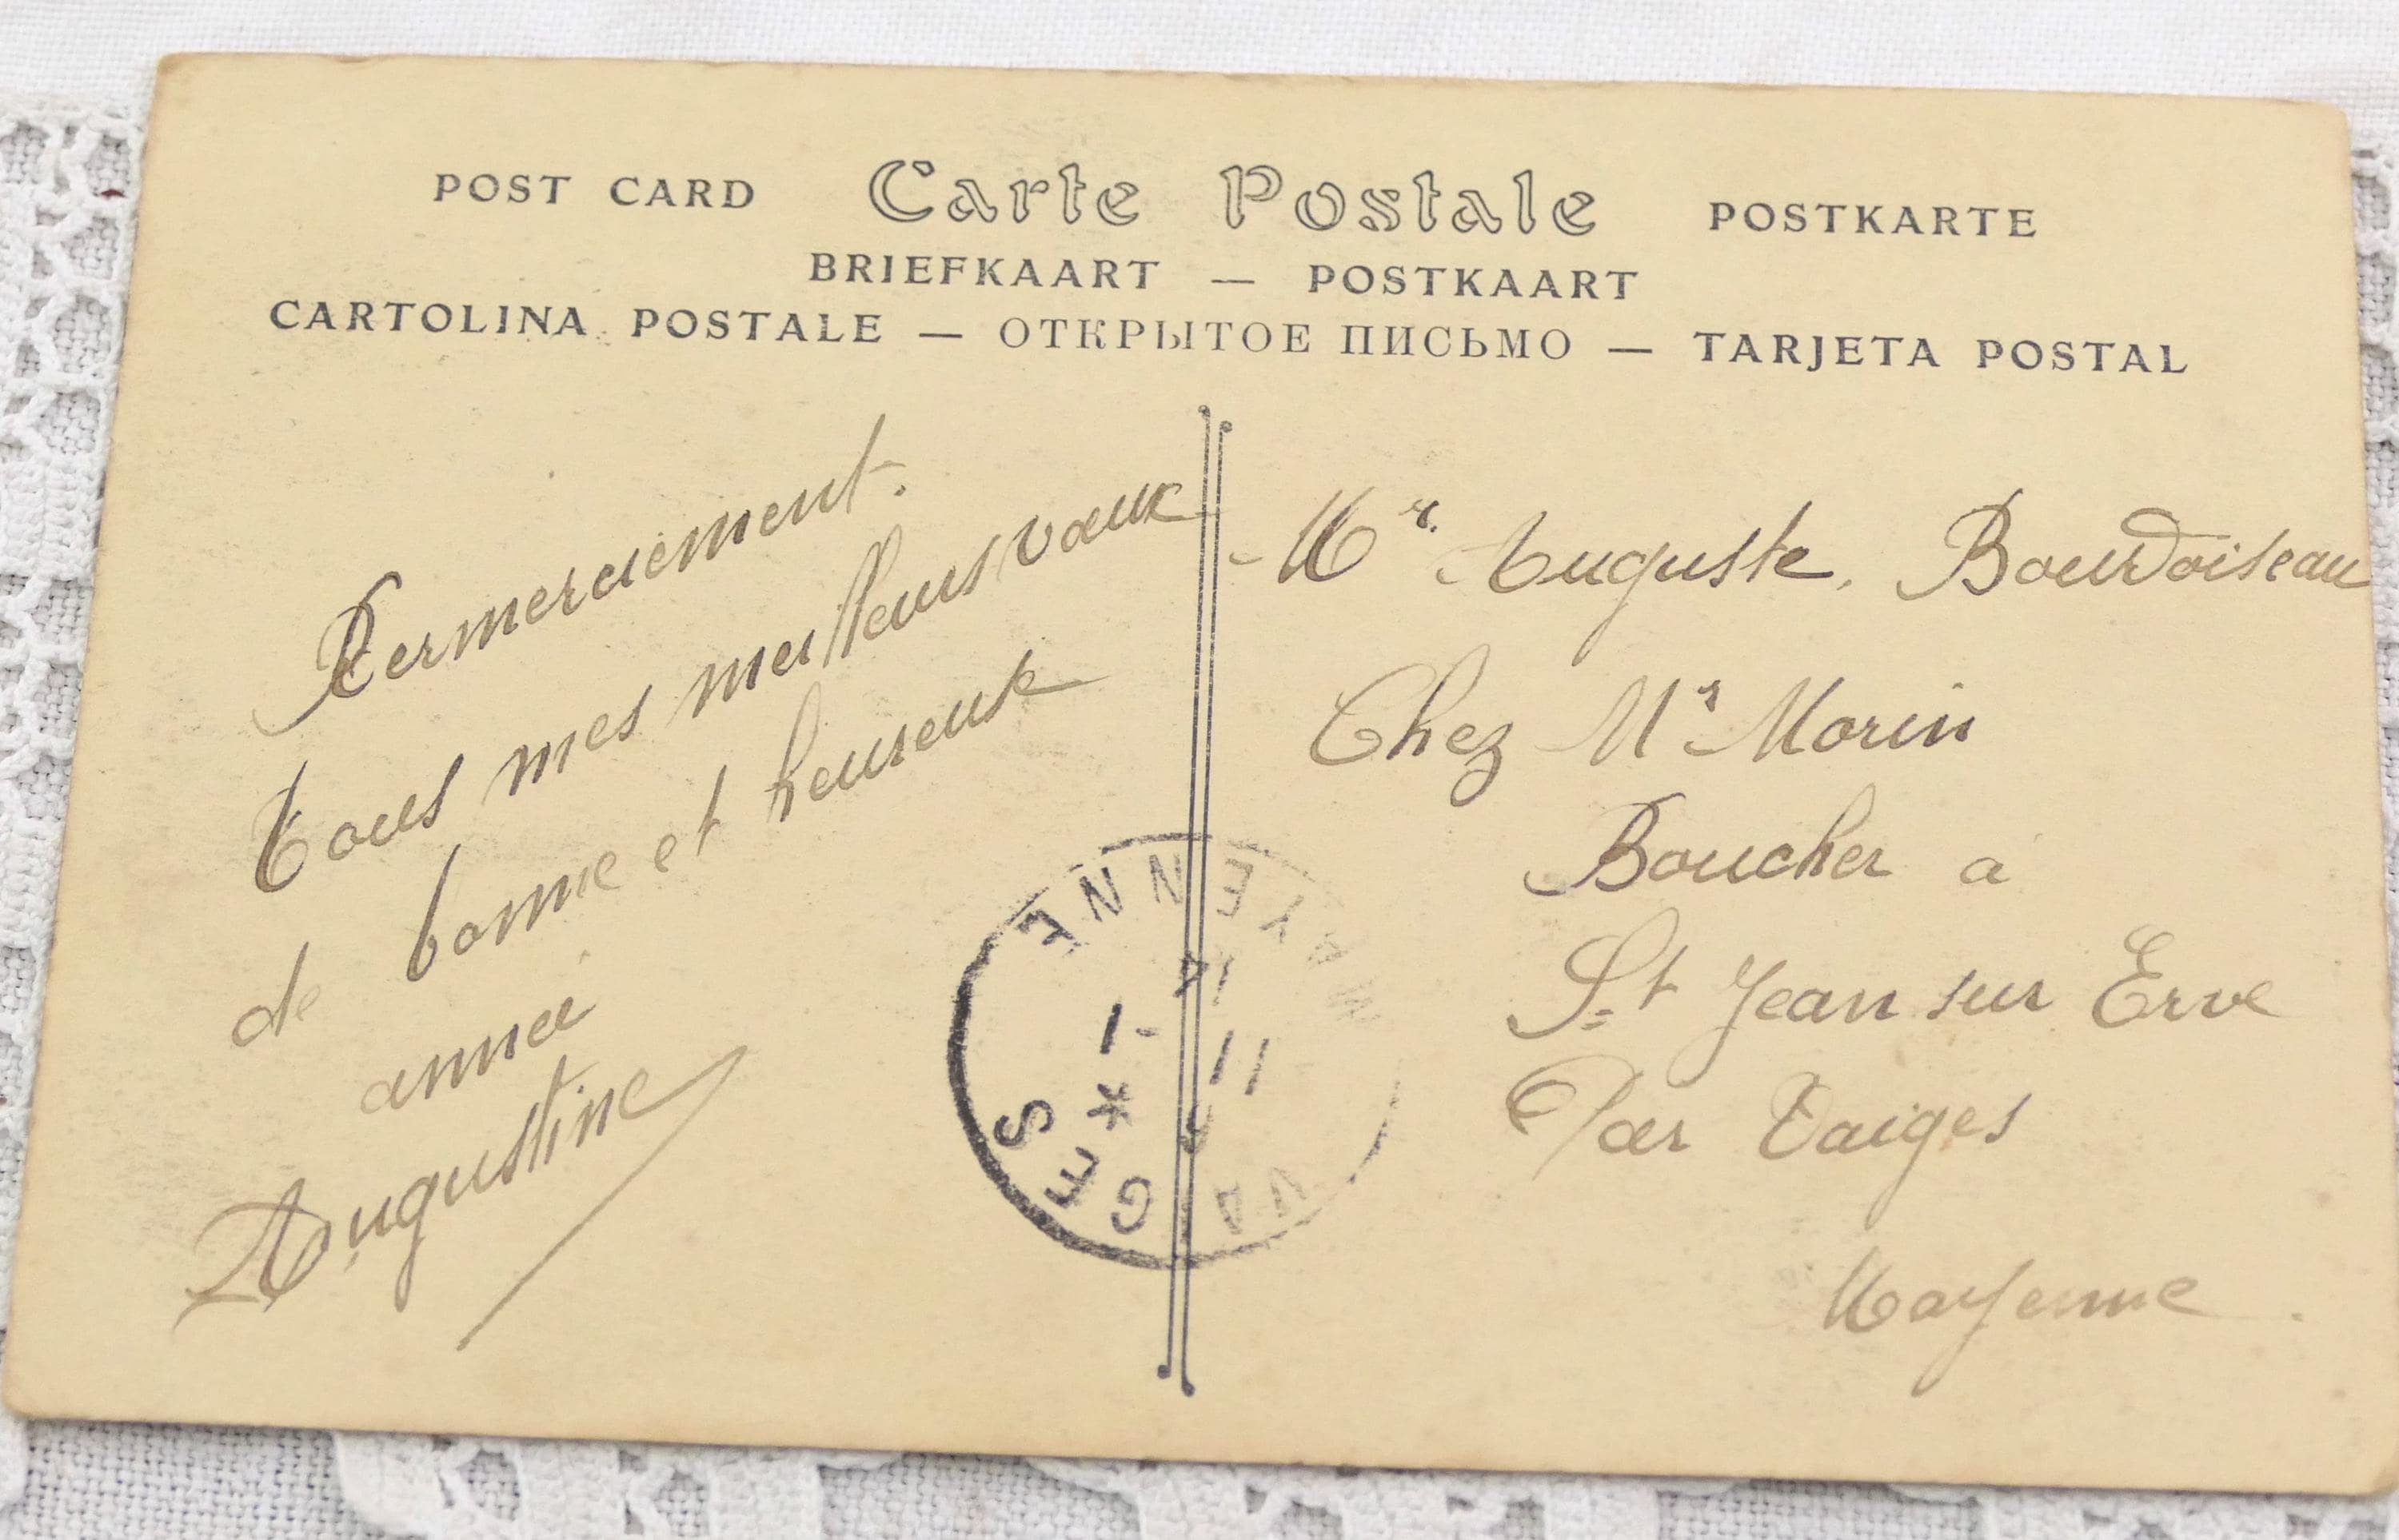 POST CARD Carte Postale POSTKARTE
BRIEFKAART — POSTKAART
CARTOLINA POSTALE — ОТКРЫТОЕ ПИСЬМО — TARJETA POSTAL
Rermerciement.
Tous mes meilleurs vœux
de bonne et heureuse
année
Augustine
Mr Auguste. Bourdoiseau
Chez Mr Morin
Boucher a
St Jean sur Erve
Par Vaiges
Mayenne.
MAYENNE
VAIGES